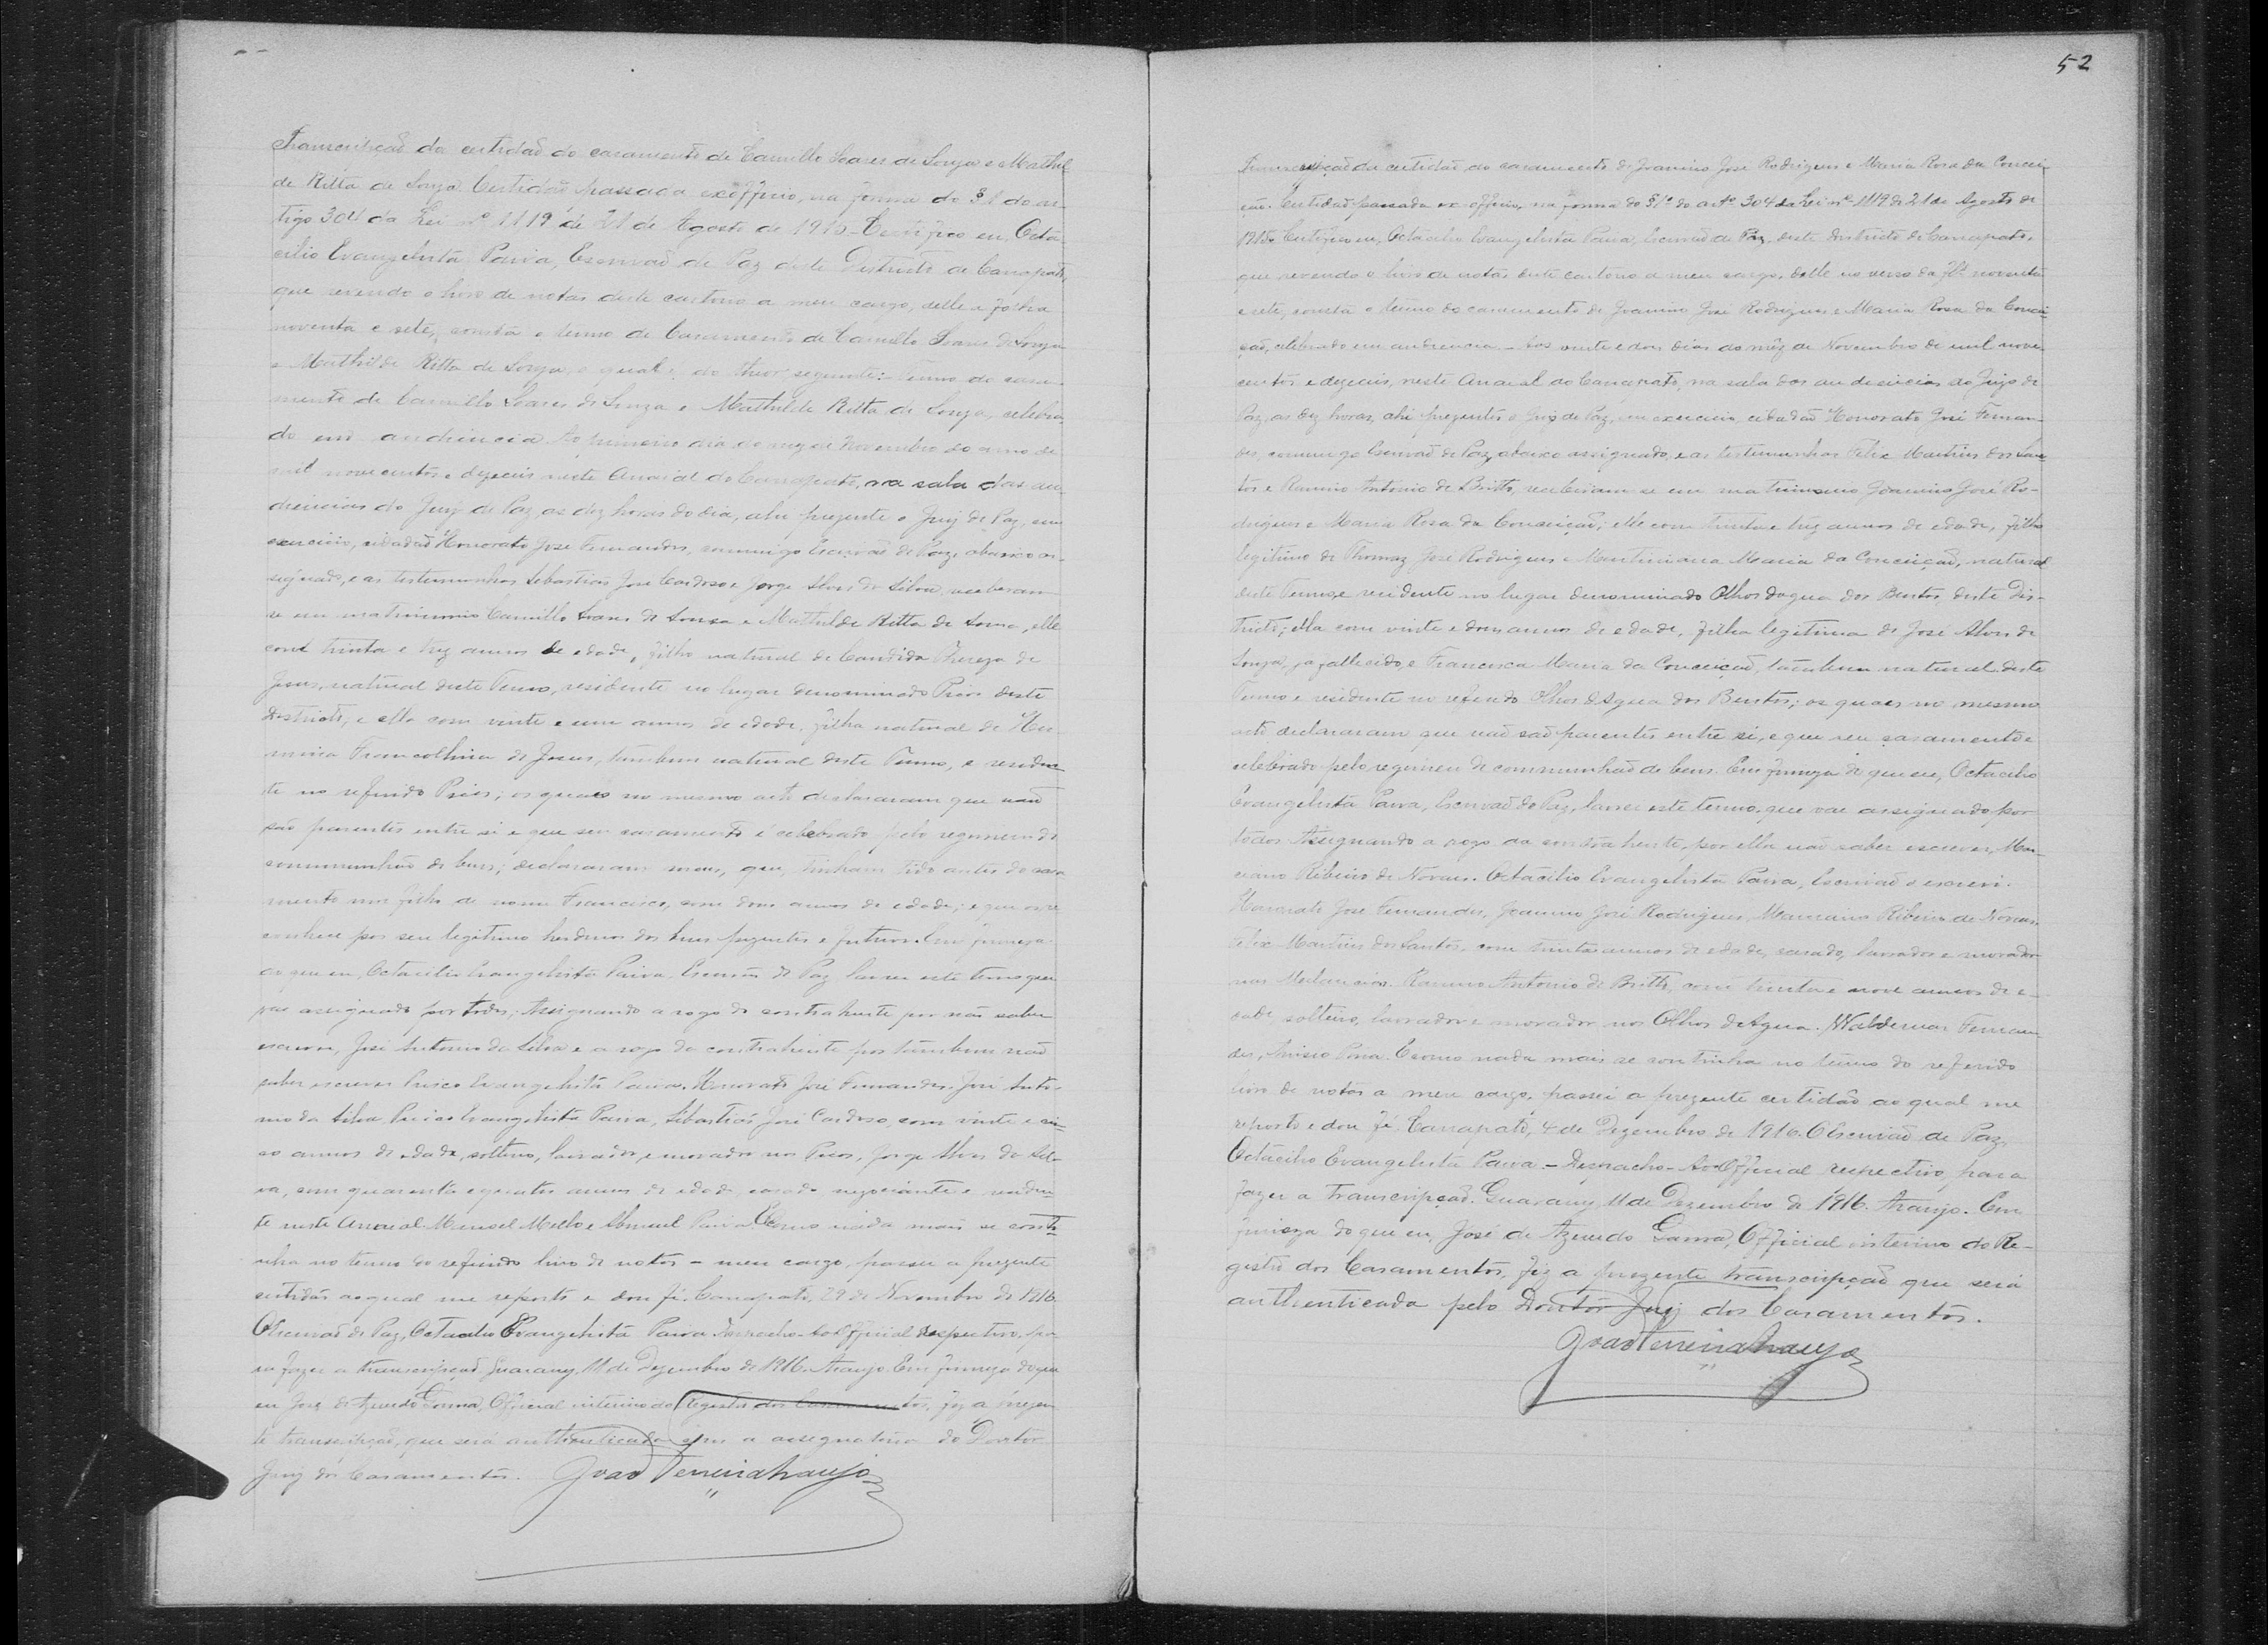 52
Transcripção da certidão do casamento de Camillo Soares de Souza e Mathil
de Ritta de Souza. Certidão passada ex officio, na forma do § 1 do ar
tigo 304 da Lei nº 1119 de 21 de Agosto de 1915 - Certifico eu, Octa
cilio Evangelista Paiva, Escrivaõ de Paz deste Districto de Carrapato,
que revendo o livro de notas deste cartorio a meu cargo, delle a folha
noventa e sete, consta o termo de Casamento de Camillo Soares de Souza
e Mathilde Ritta de Souza, o qual é do theor seguinte: - Termo do casa
mento de Camillo Soares de Souza e Mathilde Ritta de Souza, celebra
do em audiencia. Ao primeiro dia do mez de Novembro do anno de
mil novecentos e dezeseis neste Arraial do Carrapato, na sala das au
diencias do Juiz de Paz, as dez horas do dia, ahi prezente o Juiz de Paz, em
exercicio, cidadaõ Honorato José Fernandes, commigo Escrivaõ de Paz, abaixo as-
signado, e as testemunhas Sebastiaõ José Cardoso e Jorge Alves da Silva, receberam
se em matrimonio Camillo Soares de Souza e Mathilde Ritta de Souza, elle
com trinta e trez annos de edade, filho natural de Candida Thereza de
Jesus, natural deste Termo, residente no lugar denominado Picos deste
Districto, e ella com vinte e um annos de edade, filha natural de Her
mina Francolina de Jesus, tambem natural deste Termo, e residen
te no referido Picos; os quaes no mesmo acto declararam que naõ
saõ parentes entre si e que seu casamento é celebrado pelo regimen de
communhaõ de bens; declararam mais, que, tinham tido antes do casa
mento um filho de nome Francisco, com dous annos de edade; e que o re
conhece por seu legitimo herdeiro dos bens prezentes e futuros. Em firmeza
do que eu, Octacilio Evangelista Paiva, Escrivaõ de Paz lavrei este termo que
vae assignado por todos; Assignando a rogo do contrahente por naõ saber
escrever, José Antonio da Silva e a rogo da contrahente por tambem naõ
saber escrever Evangelista Paiva. Honorato José Fernandes. José Anto-
nio da Silva, Evangelista Paiva, Sebastiaõ José Cardoso, com vinte e cin
co annos de edade, solteiro, lavrador, e morador nos Picos, Jorge Alves da Sil-
va, com quarenta e quatro annos de edade casado negociante e residen
te neste Arraial. Manoel Mello e Paiva. E como nada mais se conti
nha no termo do referido livro de notas a meu cargo, passei a prezente
certidaõ ao qual me reporto e dou fé. Carrapato, 29 de Novembro de 1916.
O Escrivaõ de Paz, Octacilio Evangelista Paiva. Despacho - Ao Official respectivo, pa
ra fazer a transcripçaõ. Guarany, 11 de Dezembro de 1916. Araujo. Em firmeza do que
eu José de Azevedo Gama, Official interino do Registro dos Casamentos, fiz a prezen
te transcripçaõ, que será authenticada com a assignatura do Doutor
Juiz dos Casamentos. João Ferreira Araujo
Transcripçaõ da certidaõ do casamento de Joannino José Rodrigues e Maria Rosa da Concei-
çaõ. Certidaõ passada ex officio, na forma do § 1º do artº 304 da Lei nº 1119 de 21 de Agosto de
1915. Certifico eu, Octacilio Evangelista Paiva, Escrivaõ de Paz, deste districto de Carrapato,
que revendo o livro de notas deste cartorio a meu cargo, delle no verso da fl. noventa
e sete, consta o termo do casamento de Joannino José Rodrigues e Maria Rosa da Concei
çaõ, celebrado em audiencia. - Aos vinte e dous dias do mez de Novembro de mil nove
centos e dezeseis, neste Arraial do Carrapato, na sala das audiencias do Juizo de
Paz, as dez horas, ahi prezentes o Juiz de Paz, em exercicio, cidadaõ Honorato José Fernan-
des, commigo Escrivaõ de Paz, abaixo assignado, e as testemunhas Felix Martins dos San
tos e Ramiro Antonio de Britto, receberam-se em matrimonio Joannino José Ro-
drigues e Maria Rosa da Conceiçaõ; elle com trinta e trez annos de edade, filho
legitimo de Thomaz José Rodrigues e Maria da Conceiçaõ, natural
deste Termo e residente no lugar denominado Olhos dagua dos Bentos, deste Dis-
tricto; ella com vinte e dous annos de edade, filha legitima de José Alves de
Souza, ja fallecido, e Francisca Maria da Conceiçaõ, tambem natural deste
Termo e residente no referido Olhos dAgua dos Bentos; os quaes no mesmo
acto declararam que naõ saõ parentes entre si, e que seu casamento é
celebrado pelo regimen de communhaõ de bens. Em firmeza do que eu, Octacilio
Evangelista Paiva, Escrivaõ de Paz, lavrei este termo, que vae assignado por
todos. Assignando a rogo da contrahente, por ella naõ saber escrever, Mar-
ciano Ribeiro de Novaes. Octacilio Evangelista Paiva, Escrivaõ o escrevi.
Honorato José Fernandes, Joannino José Rodrigues, Marciano Ribeiro de Novaes,
Felix Martins dos Santos, com trinta annos de edade, casado, lavrador e morador
nas Melancias. Ramiro Antonio de Britto, com trinta e nove annos de e-
dade, solteiro, lavrador e morador nos Olhos dAgua. Waldemar Fernan
des, Paiva. E como nada mais se continha no termo do referido
livro de notas a meu cargo, passei a prezente certidaõ ao qual me
reporto e dou fé. Carrapato, 4 de Dezembro de 1916. O Escrivaõ de Paz,
Octacilio Evangelista Paiva. - Despacho - Ao Official respectivo, para
fazer a transcripçaõ. Guarany, 11 de Dezembro de 1916. Araujo. Em
firmeza do que eu, José de Azevedo Gama, Official interino do Re-
gistro dos Casamentos, fiz a prezente transcripçaõ que será
authenticada pelo Doutor Juiz dos Casamentos.
João Ferreira Araujo